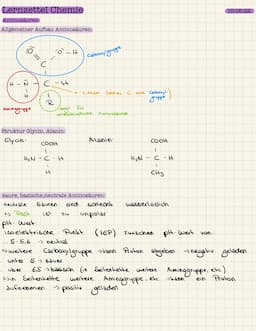 Lernzettel Chemie
Aminosäuren:
Allgemeiner Aufbau Aminosäuren:
O O - H Carboxylgruppe
C
H - N - C - H
H R
Aminogruppe
Struktur Glycin, Alanin:
Glycin: Alanin:
COOH COOH
H₂N - C - H H₂N - C - H
H CH₃
saure, basische, neutrale Aminosäuren:
neutrale Säuren sind schlecht wasserlöslich
↳ Rest ist zu unpolar
pH-Wert:
isoelektrische Punkt (IEP) zwischen pH-Wert von
5-5,6 → neutral
↳ weitere Carboxylgruppe → kann Proton abgeben → negativ geladen
unter 5 → sauer
über 6,5 → basisch (in Seitenkette weitere Aminogruppe, etc.)
↳ in Seitenkette weitere Aminogruppe, etc. → kann ein Proton
aufnehmen → positiv geladen